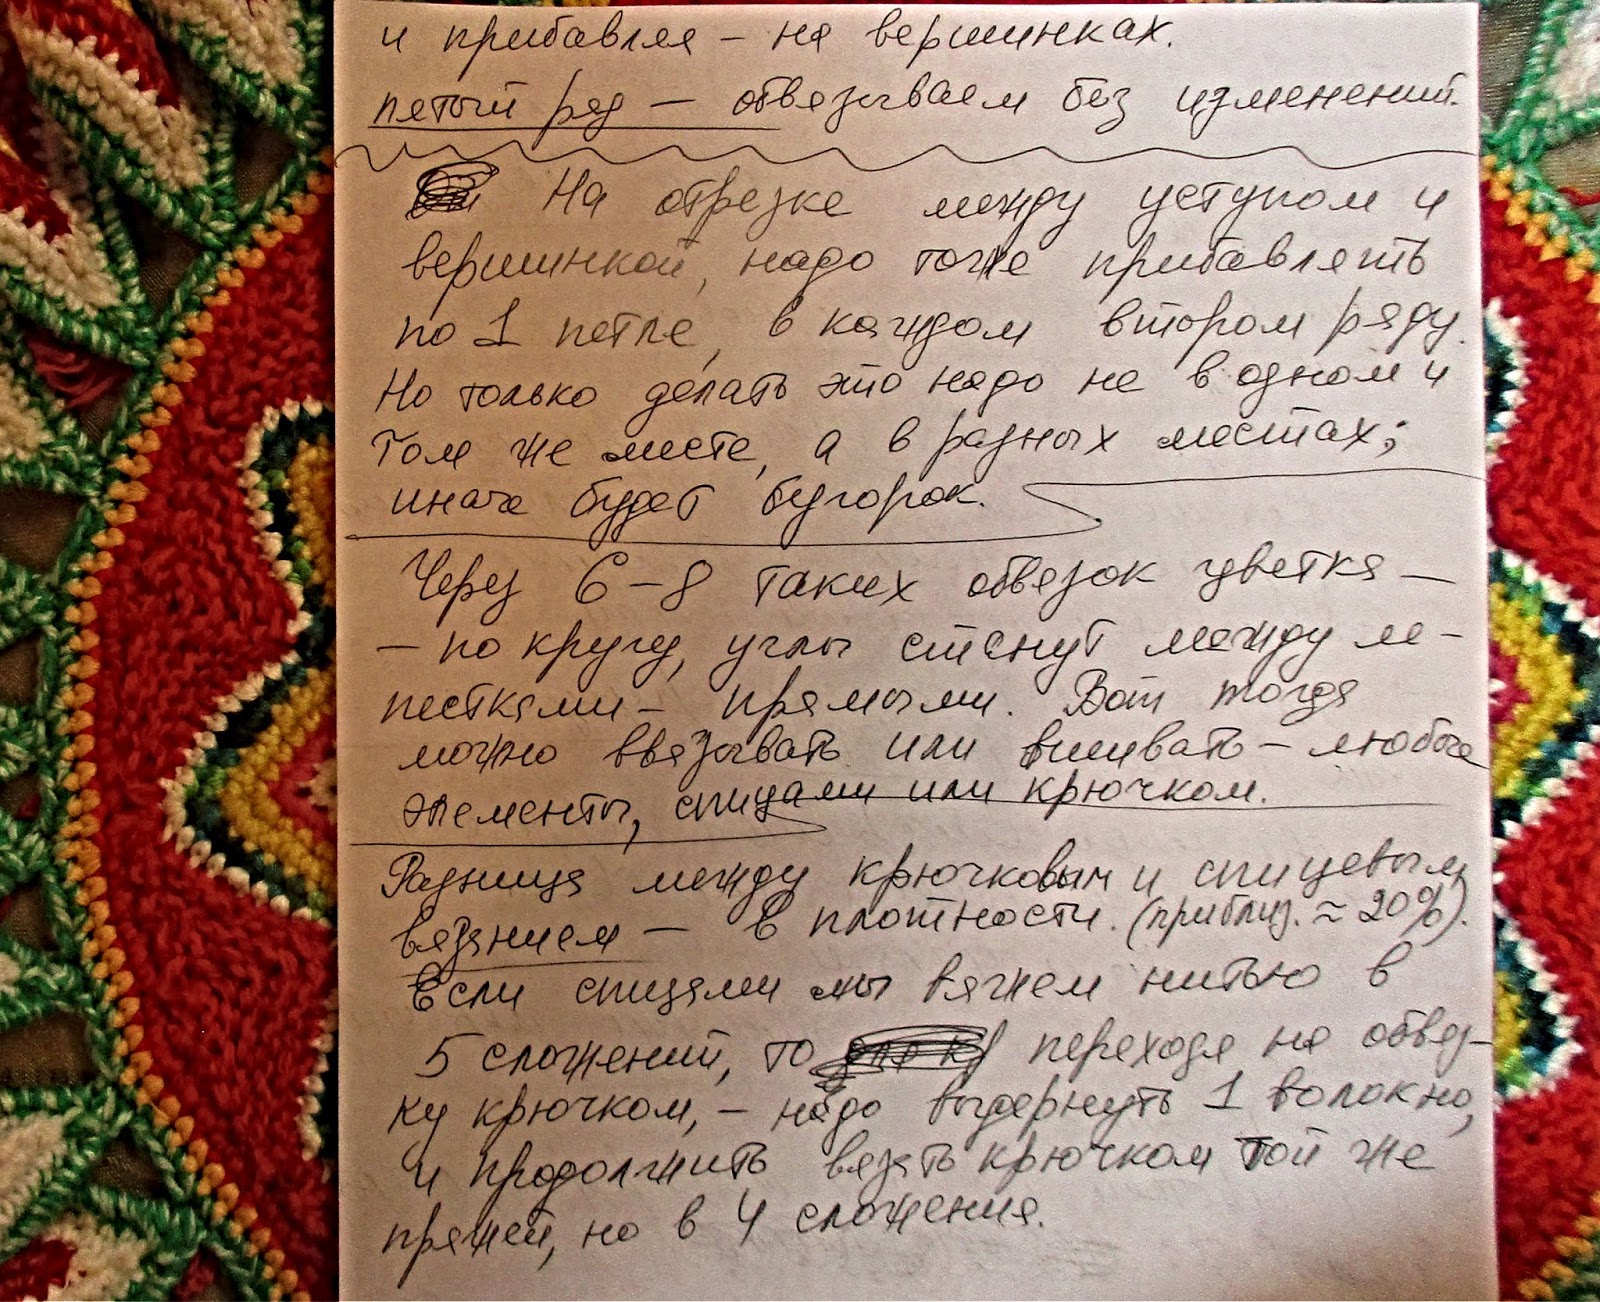 и прибавляя – на вершинках.
пятый ряд – обвязываем без изменений.
На отрезке между уступом и
вершинкой, надо тоже прибавлять
по 1 петле, в каждом втором ряду.
Но только делать это надо не в одном и
том же месте, а в разных местах;
иначе будет бугорок.
Через 6–8 таких обвязок цветка –
– по кругу, углы станут между ле-
пестками – прямыми. Вот тогда
можно ввязывать или вшивать – любые
элементы, спицами или крючком.
Разница между крючковым и спицевым
вязанием – в плотности. (приблиз. ≈ 20%).
Если спицами мы вяжем нитью в
5 сложений, то переходя на обвяз-
ку крючком, – надо выдернуть 1 волокно,
и продолжить вязать крючком той же
пряжей, но в 4 сложения.